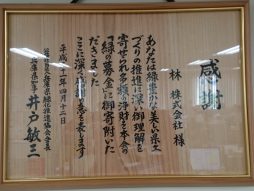 感謝状
林 株式会社 様
あなたは緑豊かな美しい県土
づくりの推進に深い御理解を
寄せられ多額の浄財を本会の
「緑の募金」に御寄附いた
だきました
ここに深く感謝の意を表します
平成二十一年四月十二日
井戸敏三